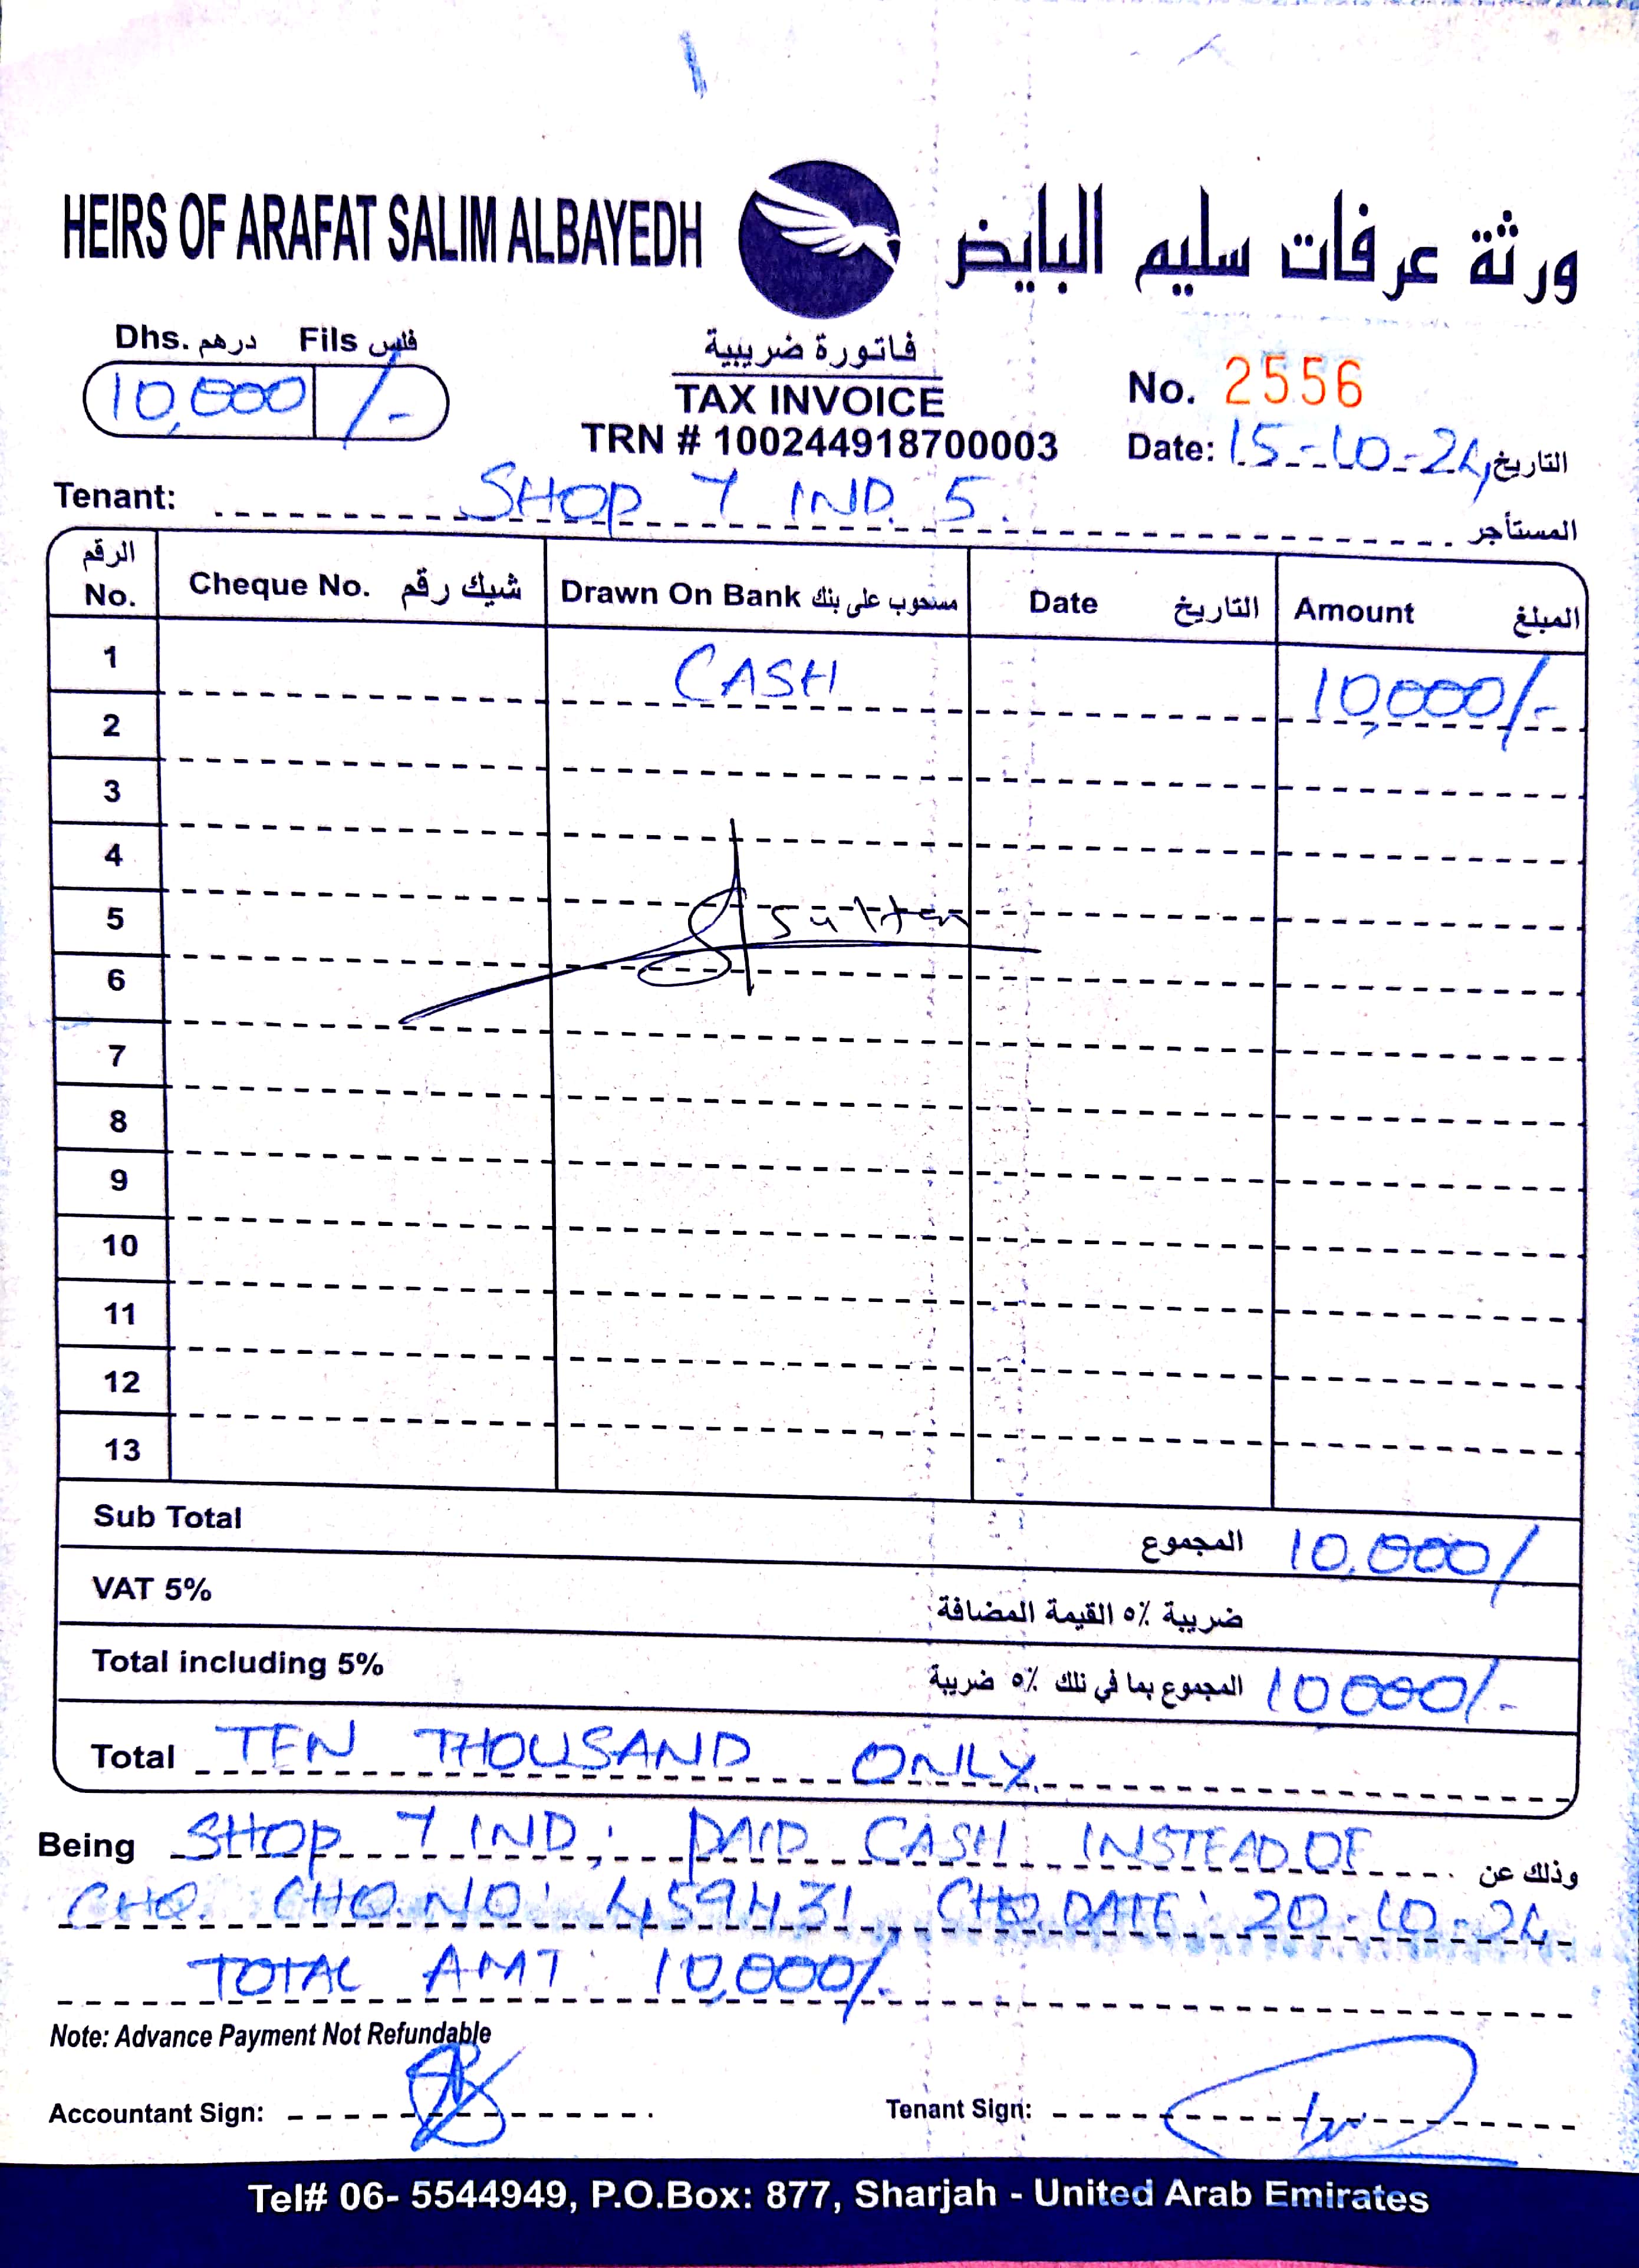 HEIRS OF ARAFAT SALIM ALBAYEDH ورثة عرفات سليم البايض
Dhs. درهم Fils فلس
10,000 /-
فاتورة ضريبية
TAX INVOICE
TRN # 100244918700003
No. 2556
Date: 15-10-24 التاريخ
Tenant: SHOP 7 IND. 5. المستأجر
الرقم No. Cheque No. شيك رقم Drawn On Bank مسحوب على بنك Date التاريخ Amount المبلغ
1 CASH 10,000/-
2
3
4
5 Sultan
6
7
8
9
10
11
12
13
Sub Total المجموع 10,000/
VAT 5% ضريبة ٥٪ القيمة المضافة
Total including 5% المجموع بما في ذلك ٥٪ ضريبة 10000/-
Total TEN THOUSAND ONLY.
Being SHOP 7 IND; PAID CASH INSTEAD OF وذلك عن
CHQ. CHQ.NO: 459431, CHQ.DATE: 20-10-24
TOTAL AMT: 10,000/-
Note: Advance Payment Not Refundable
Accountant Sign: Tenant Sign:
Tel# 06- 5544949, P.O.Box: 877, Sharjah - United Arab Emirates